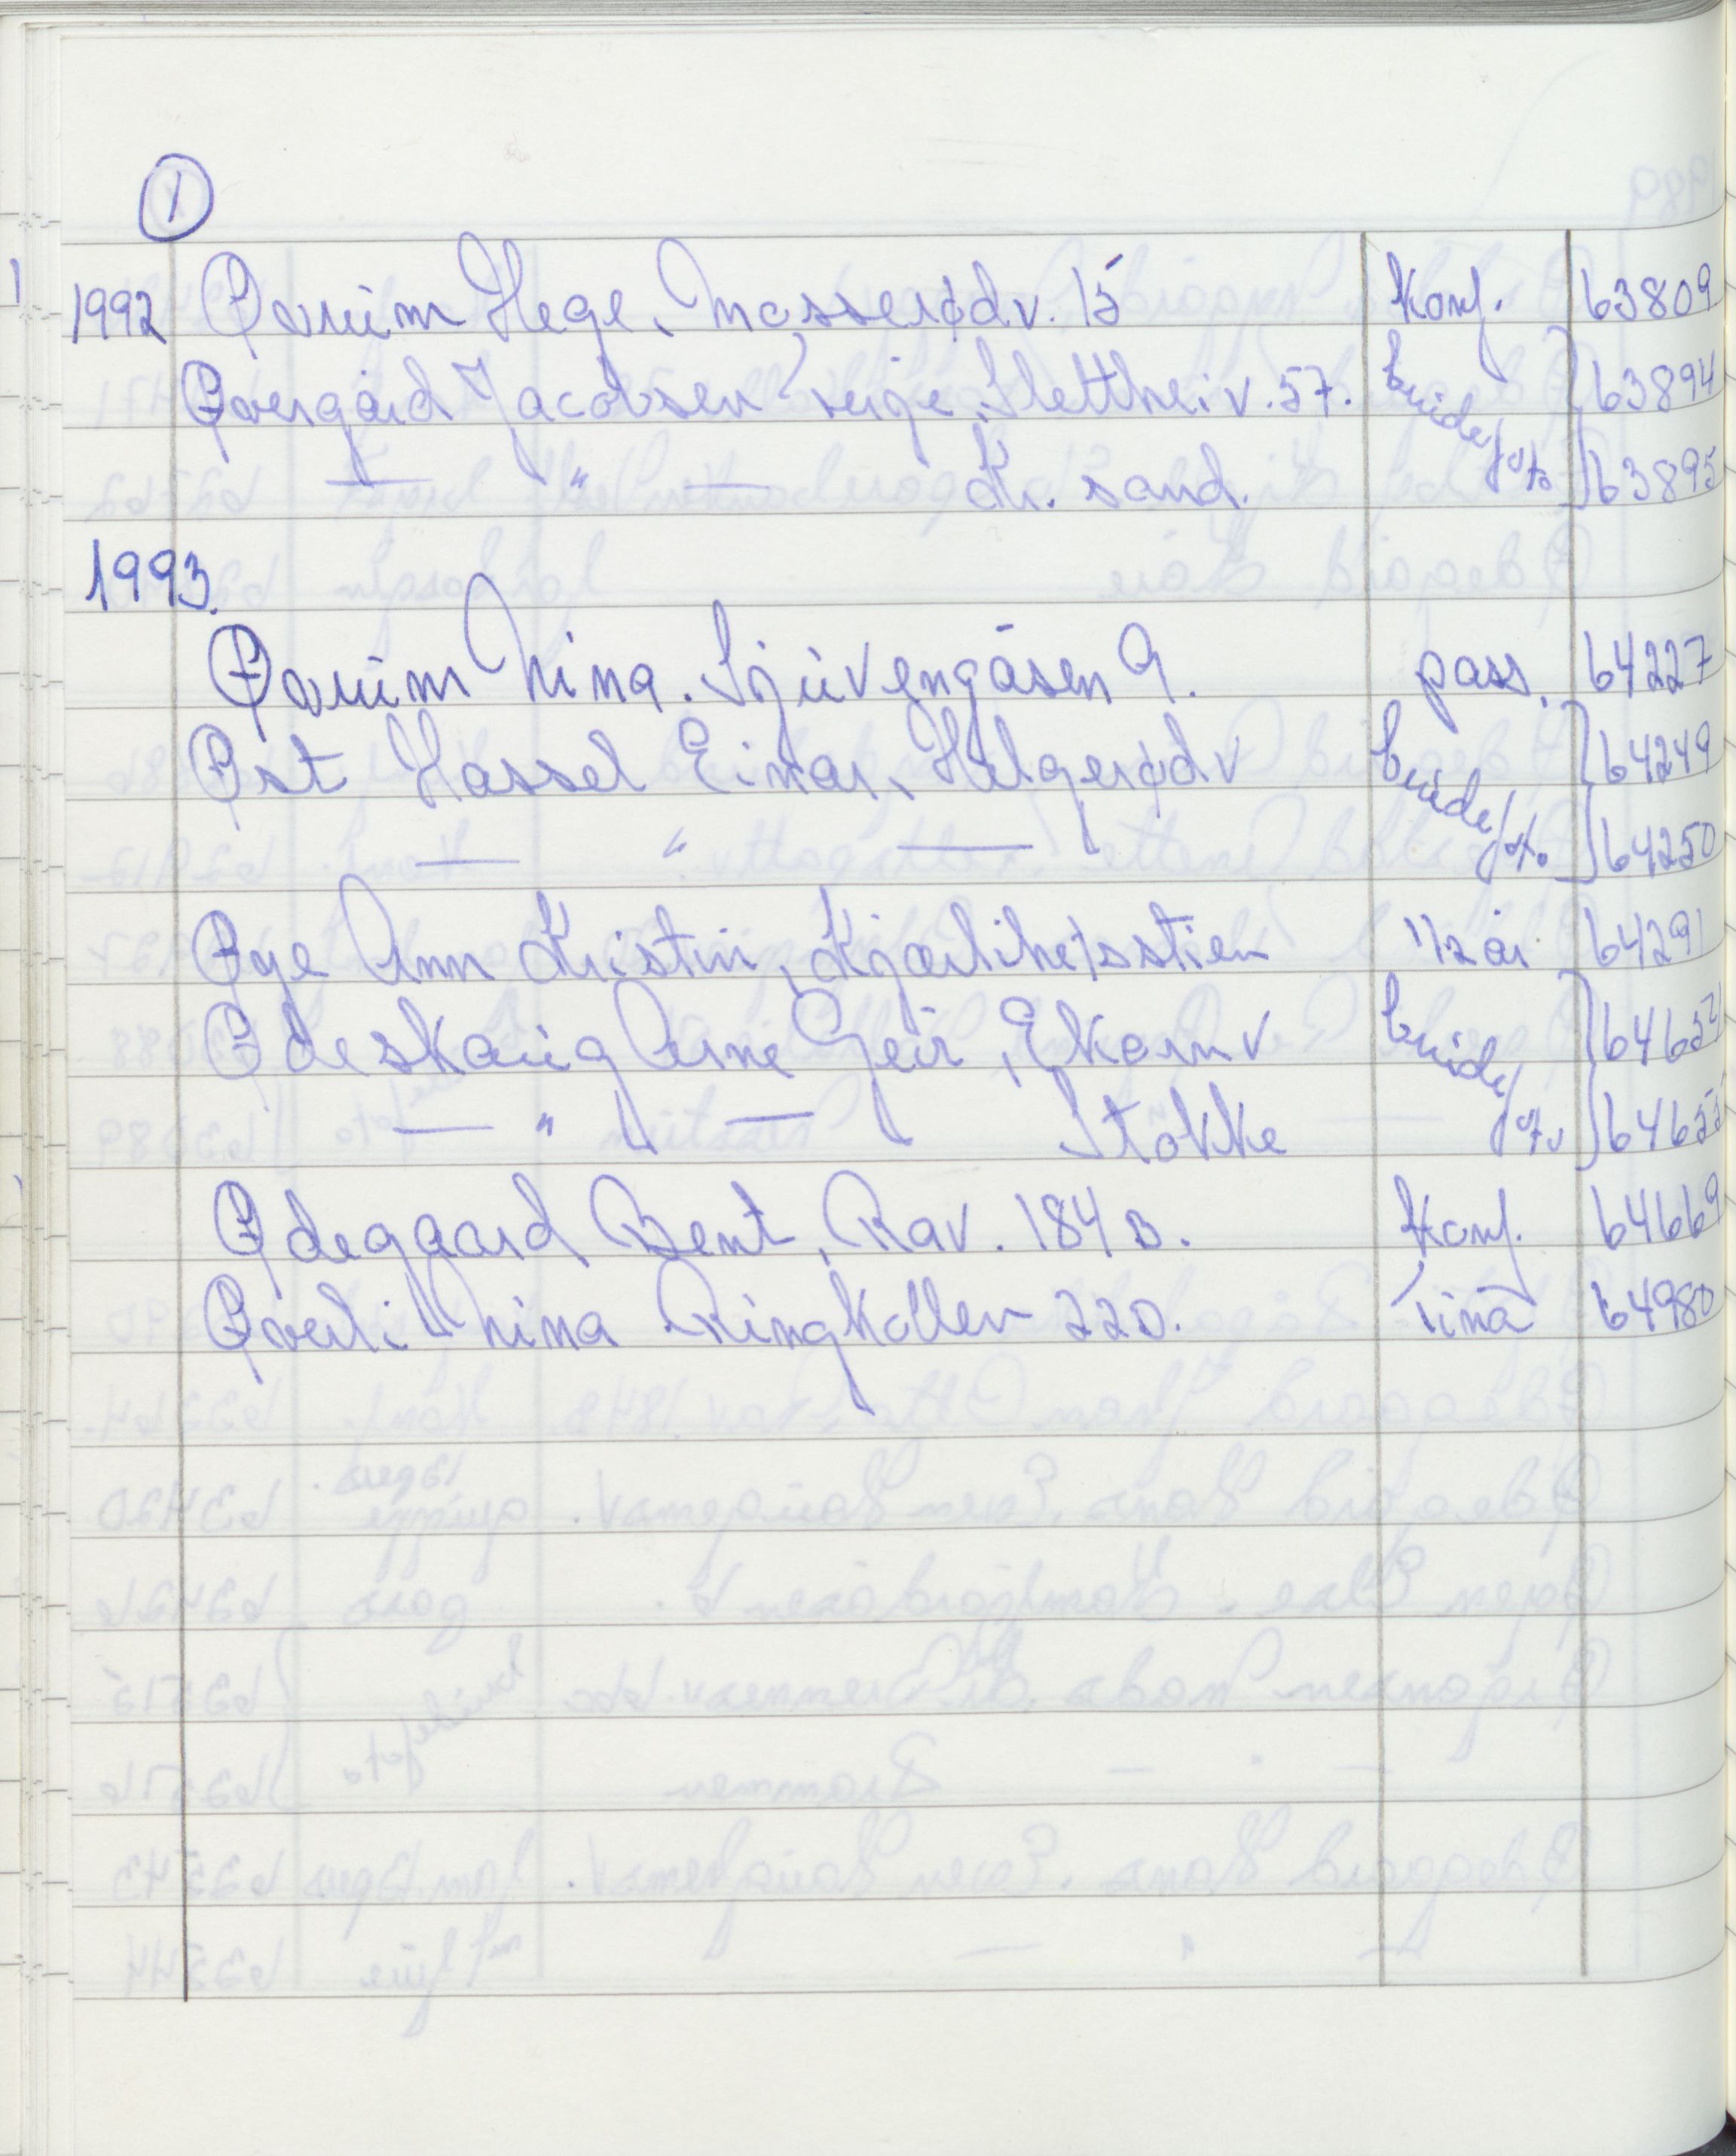 1
1992 Øvrum Hege, Mosserødv. 15 Konf. 63809
Øvergård Jacobsen Terje, Slettheiv. 57. brude 63894
— " — Kr. sand. foto 63895
1993.
Øvrum Nina. Sjuvengåsen 9. pass. 64227
Øst Hassel Einar, Helgerødv brude 64249
— " — foto 64250
Øye Ann Kristin, Kjærlihetsstien 1/2 år 64291
Ødeskaug Arne Geir, Ekornv brude
— " — Stokke foto
Ødegaard Bent, Rav. 184 B. Konf. 64669
Øverli Nina Ringkollen 22D. Tina 64980